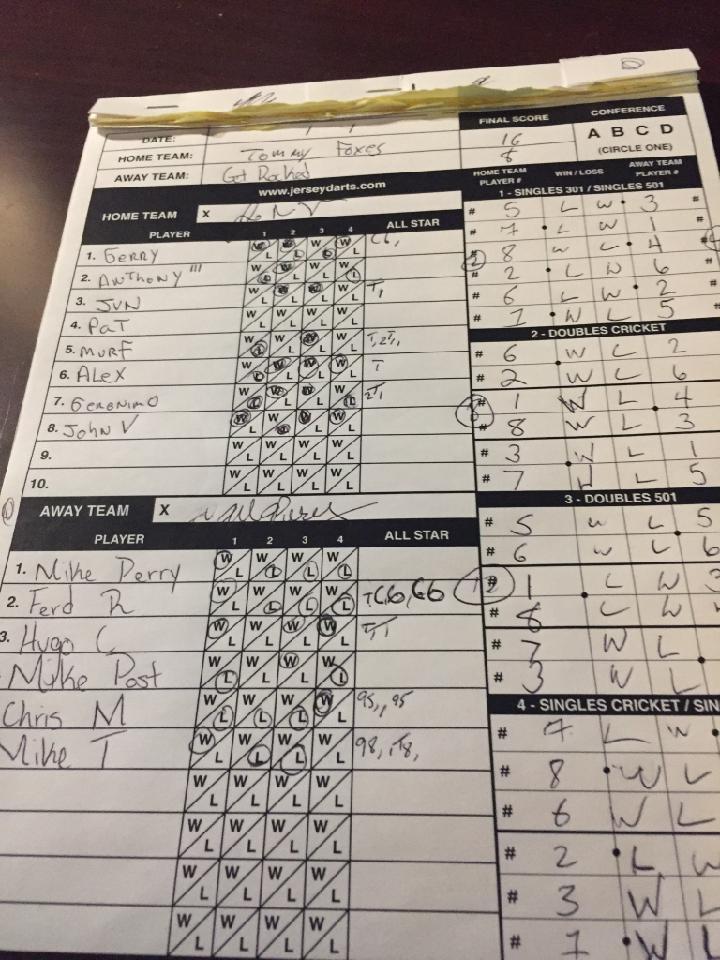 FINAL SCORE CONFERENCE
DATE: 16 A B C D
HOME TEAM: Tommy Foxes 8 (CIRCLE ONE)
AWAY TEAM: Got Rocked
HOME TEAM PLAYER # WIN / LOSS AWAY TEAM PLAYER #
www.jerseydarts.com
1 - SINGLES 301 / SINGLES 501
HOME TEAM X
# 5 L W 3 #
PLAYER 1 2 3 4 ALL STAR
# 7 L W 1 #
1. GERRY W L W L W L W L C6,
# 8 W L 4
2. ANTHONY III W L W L W L W L
# 2 L W 6
3. JUN W L W L W L W L
# 6 L W 2 #
4. PAT W L W L W L W L
# 1 W L 5 #
5. MURF W L W L W L W L
2 - DOUBLES CRICKET
6. ALEX W L W L W L W L T
# 6 W L 2
# 2 W L 6
7. GERONIMO W L W L W L W L
# 1 W L 4
8. JOHN V W L W L W L W L
# 8 W L 3
9. W L W L W L W L
# 3 W L 1
10. W L W L W L W L
# 7 L 5
AWAY TEAM X
3 - DOUBLES 501
PLAYER 1 2 3 4 ALL STAR
# 5 W L 5
# 6 W L 6
1. Mike Perry W L W L W L W L
# 1 L W 3
2. Ferd R W L W L W L W L
# 8 L W
3. Hugo C W L W L W L W L
# 7 W L
Mike Post W L W L W L W L
# 3 W L
Chris M W L W L W L W L 95,, 95
4 - SINGLES CRICKET / SIN
Mike T W L W L W L W L
# 7 L W
W L W L W L W L
# 8 W L
W L W L W L W L
# 6 W L
W L W L W L W L
# 2 L W
W L W L W L W L
# 3 W L
# 1 W L